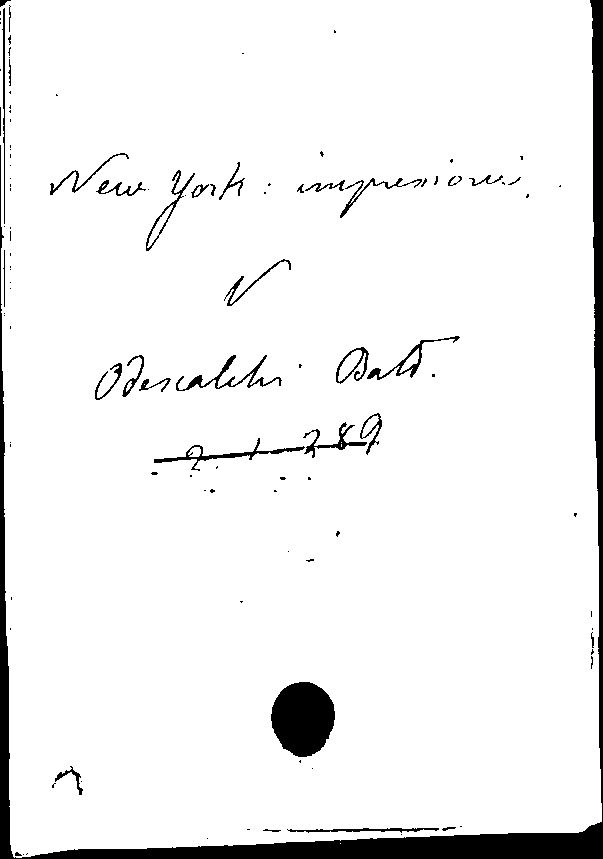 New York: impressioni.
V
Odescalchi Bald.
2. 1 289